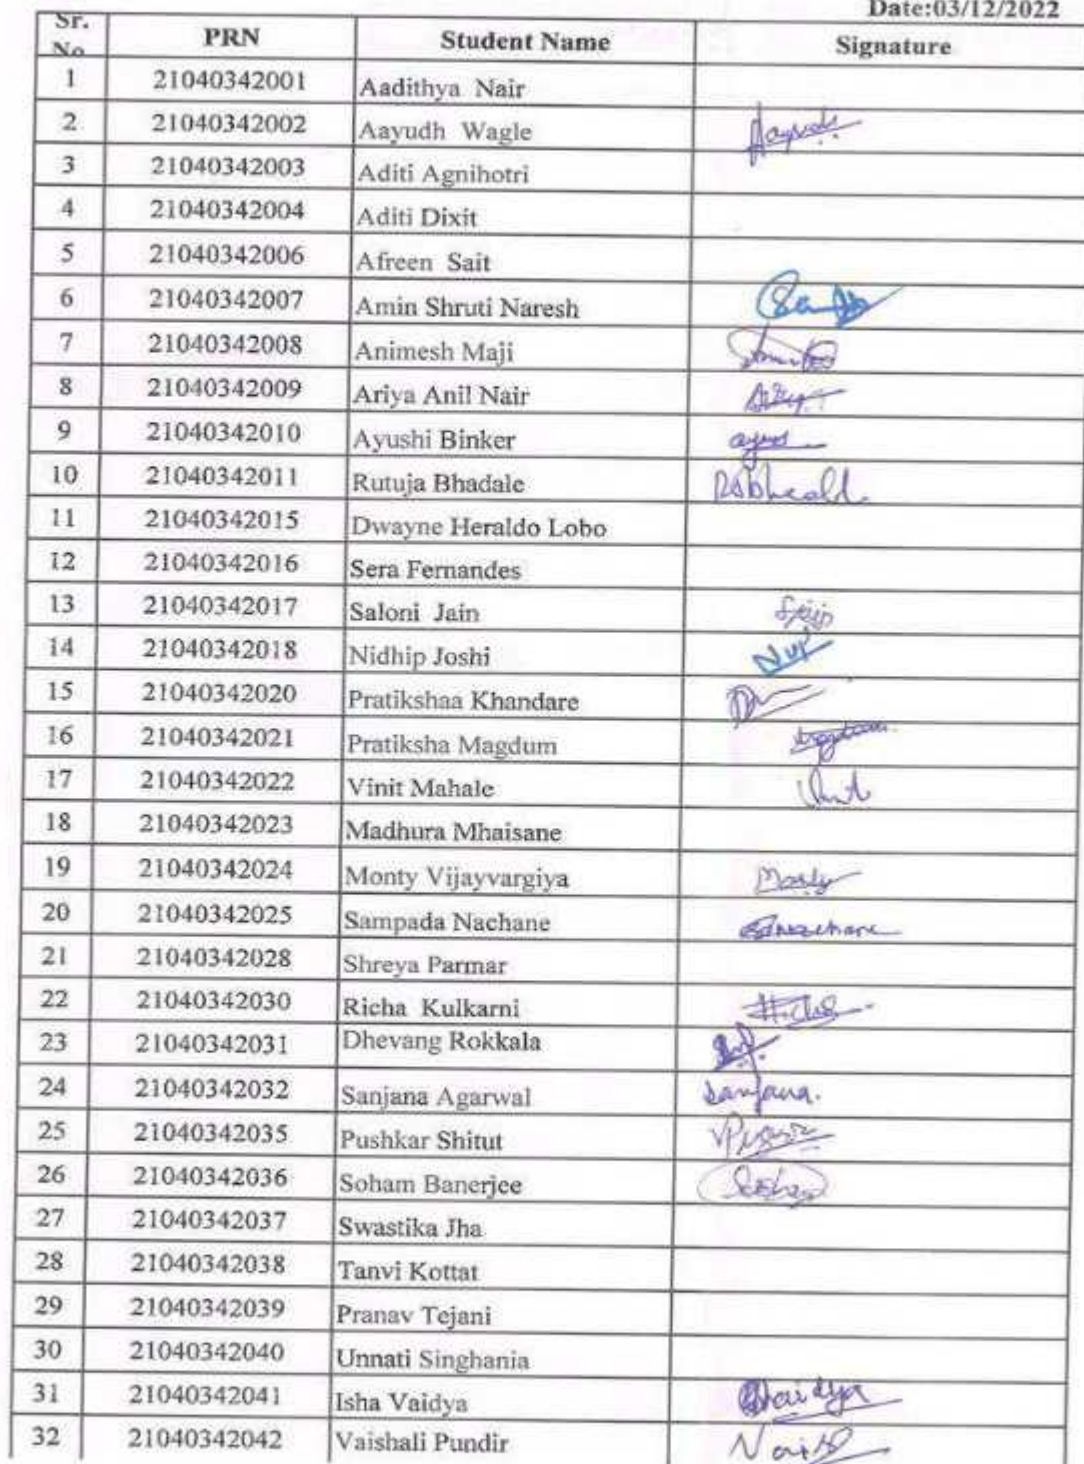 Date:03/12/2022
Sr. No PRN Student Name Signature
1 21040342001 Aadithya Nair
2 21040342002 Aayudh Wagle Aayudh
3 21040342003 Aditi Agnihotri
4 21040342004 Aditi Dixit
5 21040342006 Afreen Sait
6 21040342007 Amin Shruti Naresh
7 21040342008 Animesh Maji
8 21040342009 Ariya Anil Nair
9 21040342010 Ayushi Binker
10 21040342011 Rutuja Bhadale
11 21040342015 Dwayne Heraldo Lobo
12 21040342016 Sera Fernandes
13 21040342017 Saloni Jain
14 21040342018 Nidhip Joshi
15 21040342020 Pratikshaa Khandare
16 21040342021 Pratiksha Magdum
17 21040342022 Vinit Mahale Vinit
18 21040342023 Madhura Mhaisane
19 21040342024 Monty Vijayvargiya Monty
20 21040342025 Sampada Nachane
21 21040342028 Shreya Parmar
22 21040342030 Richa Kulkarni
23 21040342031 Dhevang Rokkala
24 21040342032 Sanjana Agarwal Sanjana.
25 21040342035 Pushkar Shitut
26 21040342036 Soham Banerjee
27 21040342037 Swastika Jha
28 21040342038 Tanvi Kottat
29 21040342039 Pranav Tejani
30 21040342040 Unnati Singhania
31 21040342041 Isha Vaidya
32 21040342042 Vaishali Pundir